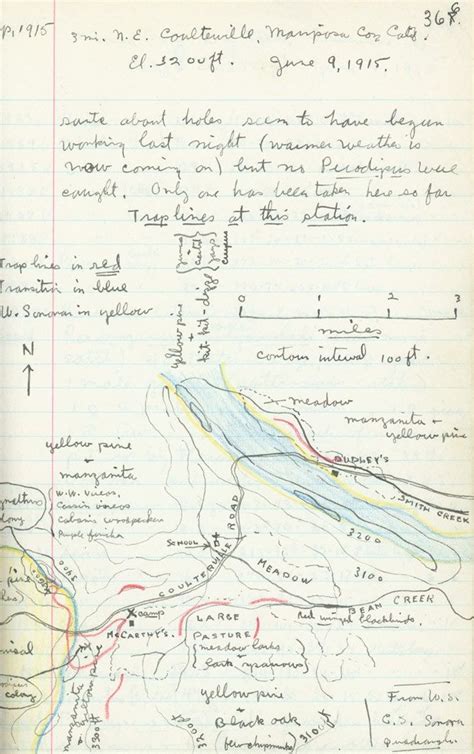 1915
368
3 mi. N.E. Coulterville, Mariposa Co., Calif.
El. 3200 ft. June 9, 1915.
about holes seem to have begun
working last night (warmer weather is
now coming on) but no Perodipus were
caught. Only one has been taken here so far
Trap lines at this station.
Trap lines in red
Transition in blue
W. Sonoran in yellow
yellow pine
0 1 2 3
miles
contour interval 100 ft.
N
meadow
manzanita
+
yellow pine
DUDLEY'S
SMITH CREEK
yellow pine
+
manzanita
W.W. Vireos
Cassin vireos
Cabanis woodpecker
Purple finches
SCHOOL
COULTERVILLE ROAD
MEADOW
3200
3100
3000
BEAN CREEK
Red winged blackbirds
camp
McCARTHY'S.
LARGE
PASTURE
meadow larks
lark sparrows
manzanita
+ yellow pine
yellow pine
+
Black oak
(few chipmunks)
3300
3200 ft
3100 ft
colony
From U.S.
G.S. Sonora
Quadrangle.